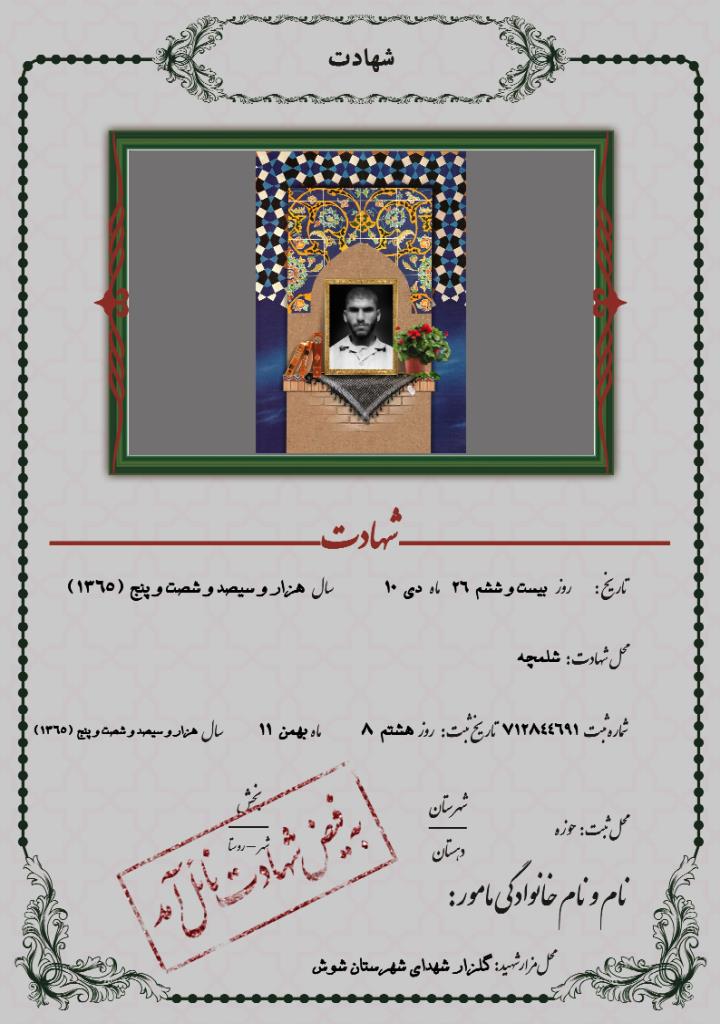 شهادت
شهادت
تاریخ: روز بیست و ششم ۲۶ ماه دی ۱۰ سال هزار و سیصد و شصت و پنج (۱۳۶۵)
محل شهادت: شلمچه
شماره ثبت ۷۱۲۸۴۴۶۹۱ تاریخ ثبت: روز هشتم ۸ ماه بهمن ۱۱ سال هزار و سیصد و شصت و پنج (۱۳۶۵)
محل ثبت: حوزه شهرستان بخش
دهستان شهر-روستا
به فیض شهادت نائل آمد
نام و نام خانوادگی مامور:
محل مزار شهید: گلزار شهدای شهرستان شوش